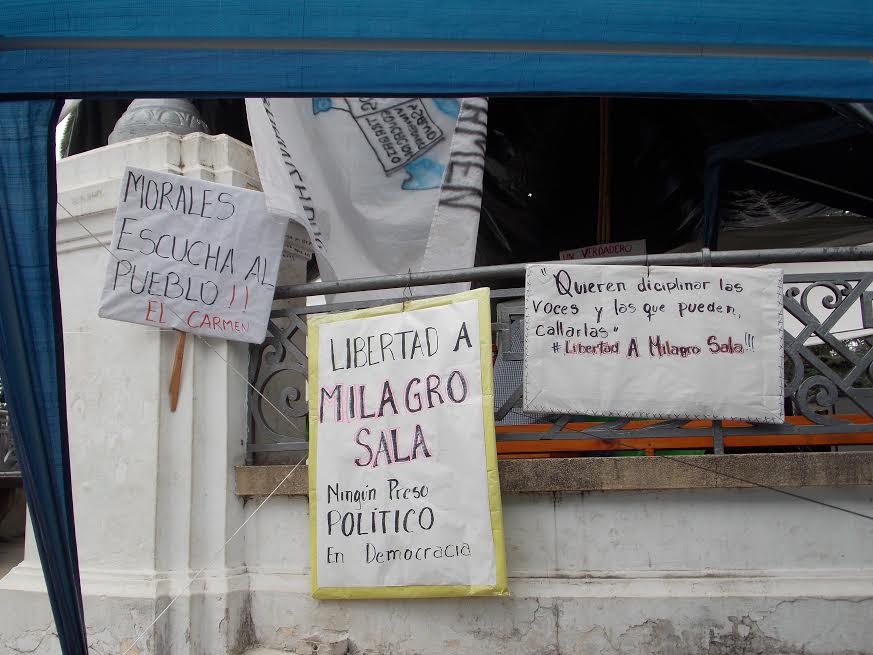 MORALES
ESCUCHA AL
PUEBLO!!
EL CARMEN
LIBERTAD A
MILAGRO
SALA
Ningún Preso
POLÍTICO
En Democracia
UN VERDADERO
"Quieren diciplinar las
voces y las que pueden,
callarlas"
#Libertad A Milagro Sala!!!